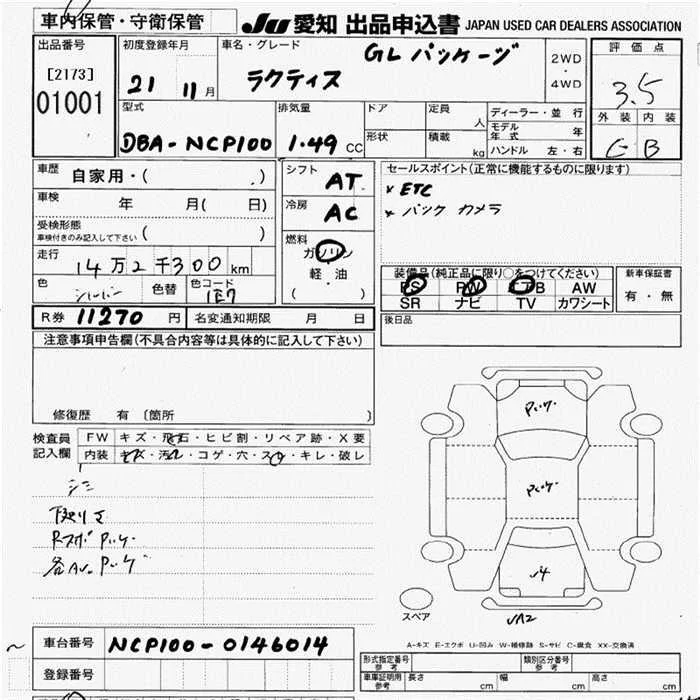 車内保管・守衛保管
JU 愛知 出品申込書 JAPAN USED CAR DEALERS ASSOCIATION
出品番号
[2173]
01001
初度登録年月
21 11月
車名・グレード
GL パッケージ
ラクティス
2WD
・
4WD
評価点
3.5
外装 内装
C B
型式
DBA-NCP100
排気量
1.49 CC
ドア
形状
定員 人
積載 kg
ディーラー・並行
モデル年式 年
ハンドル 左・右
車歴
自家用・( )
車検 年 月( 日)
受検形態
車検付きのみ記入して下さい ( )
走行
14万2千300km
色 シルバー 色替 色コード 1E7
シフト AT
冷房 AC
燃料
ガソリン
軽・油
( )
セールスポイント(正常に機能するものに限ります)
× ETC
× バック カメラ
装備品(純正品に限り○をつけてください)
PS PW エアB AW
SR ナビ TV カワシート
新車保証書
有・無
後日品
R券 11270 円 名変通知期限 月 日
注意事項申告欄(不具合内容等は具体的に記入して下さい)
修復歴 有 〔箇所 〕
検査員
記入欄
FW キズ・飛石・ヒビ割・リペア跡・X要
内装 キズ・汚れ・コゲ・穴・スレ・キレ・破レ
シミ
下廻りサ
スペア
A-キズ E-エクボ U-凹み W-補修跡 S-サビ C-腐食 XX-交換済
車台番号 NCP100-0146014
登録番号
形式指定番号 参考
類別区分番号 参考
車庫証明用 参考 長さ cm 幅 cm 高さ cm